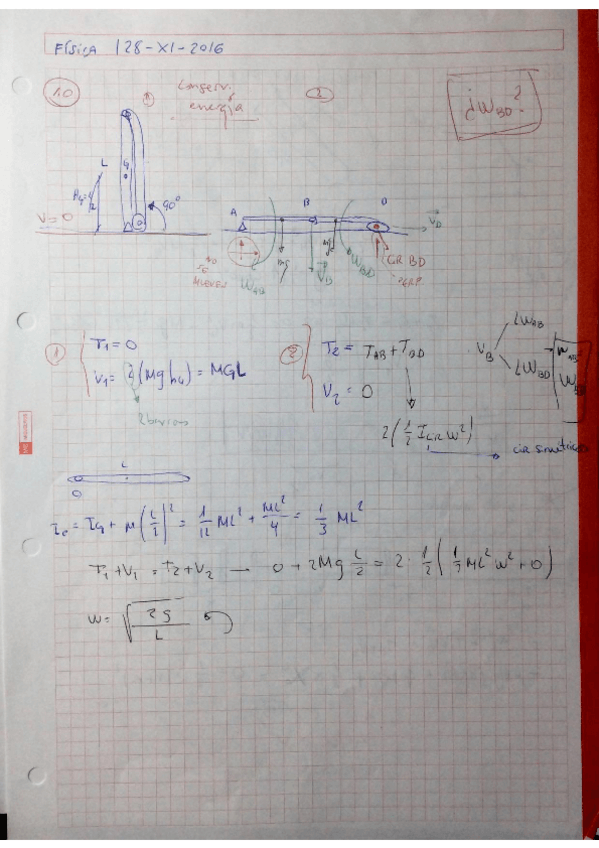 FÍSICA 128-XI-2016
10
1
Conserv.
energía
2
¿W_BD?
L
G
90°
V=0
A
B
D
V_D
mg
mg
W_AB
V_D
W_BD
CIR BD
NO
SE
MUEVE
1
T₁=0
V₁= 2(Mgh_G) = MGL
2 barras
2
T₂ = T_AB + T_BD
V₂ = 0
2(½ I_CIR W²)
CIR simétricos
V_B
LW_AB
LW_BD
W_AB
L
O
I_o = I_G + M(L/2)² = 1/12 ML² + ML²/4 = 1/3 ML²
T₁+V₁ = T₂+V₂ — 0 + 2Mg L/2 = 2 · ½ (⅓ ML² W² + 0)
W = √
L